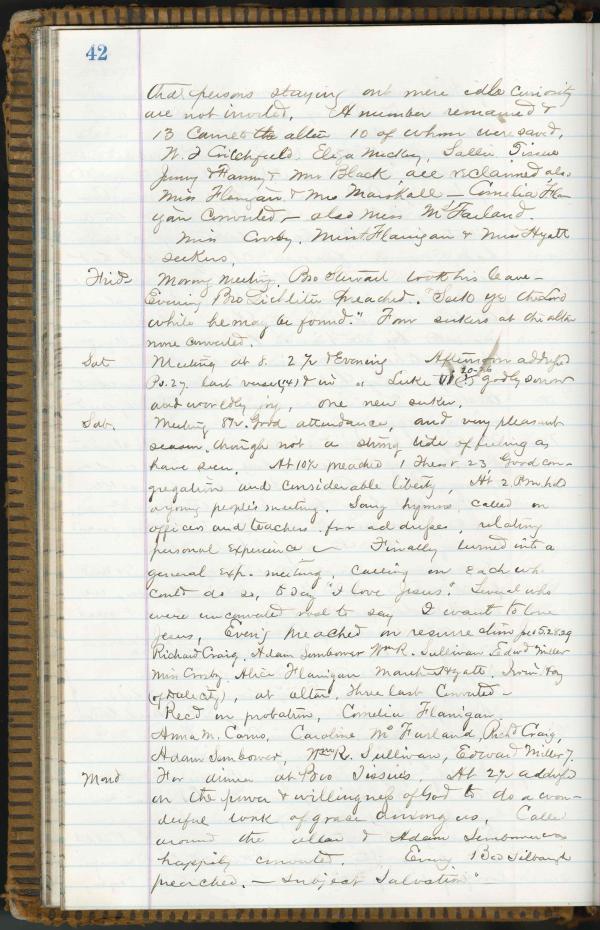 42
that persons staying out mere idle curiosity
are not invited. A number remained &
13 came to the altar 10 of whom were saved,
Eliza Mickey, Sallie Tissue
Jenny & Fanny & Mrs Black all reclaimed also
Miss Flanigan & Mrs Marshall — Cornelia Flan
gan converted, — also Miss McFarland.
Miss Crosby, Miss Flanigan & Miss Hyatt
seekers,
Frid. Morning meeting, Bro Steward took his leave —
Evening Bro preached. "Seek ye the Lord
while he may be found." Four seekers at the altar
none converted.
Sat Meeting at 8. 2 1/2 & Evening Afternoon address
Ps. 27 last verse (14) & in " Luke VI 20-26 godly sorrow
and worldly joy, one new seeker.
Sab. Meeting 8 1/2. Good attendance, and very pleasant
season, though not a strong tide of feeling as
have seen. At 10 1/2 preached 1 Thess 23, Good con-
gregation and considerable liberty, At 2 P.m. held
a young people's meeting. Sang hymns, called on
officers and teachers for addresses, relating
personal experience Finally turned into a
general exp. meeting, calling on each who
could do so, to say "I love Jesus." Several who
were unconverted rose to say I want to love
Jesus, Even'g Preached on resurrection 5.28.29
Richard Craig, Adam Sembower Wm R. Sullivan Edwd Miller
Miss Crosby Alice Flanigan Hyatt, Irvin Hay
at altar, three last converted —
Recd on probation, Cornelia Flanigan,
Anna M. Caroline McFarland, Richd Craig,
Adam Sembower, Wm R. Sullivan, Edward Miller 7.
Mond For dinner at Bro Tissues. At 2 1/2 address
on the power & willingness of God to do a won-
derful work of grace among us, Called
around the altar & Adam Sembower was
happily converted. Even'g Bro Silbaugh
preached. — Subject Salvation" —